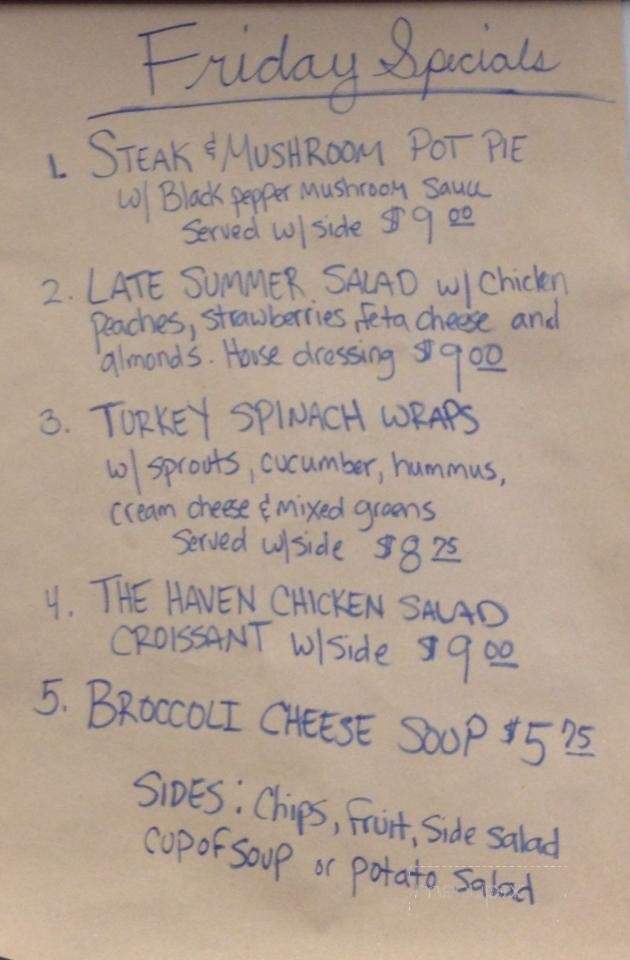 Friday Specials
1. STEAK & MUSHROOM POT PIE
w/ Black pepper Mushroom Sauce
Served w/side $9 00
2. LATE SUMMER SALAD w/ Chicken
Peaches, strawberries, feta cheese and
almonds. House dressing $9 00
3. TURKEY SPINACH WRAPS
w/ sprouts, cucumber, hummus,
cream cheese & mixed greens
Served w/side $8 75
4. THE HAVEN CHICKEN SALAD
CROISSANT w/Side $9 00
5. BROCCOLI CHEESE SOUP $5 75
SIDES: Chips, Fruit, Side Salad
CUP OF SOUP or Potato Salad